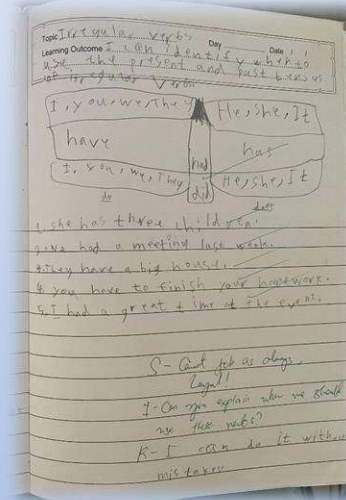 Topic Irregular verbs Day Date / /
Learning Outcome I can identify when to
use the present and past tens
of irregular verbs
I, you, we, They He, she, It
have had has
I, you, we, They did He, She, It
do does
1. She has three children.
2. had a meeting last week.
3. They have a big house.
4. you have to finish your homework.
5. I had a great time at the event.
S- as always,
I- Can you explain when we should
use these verbs?
K- I can do it without
mistakes